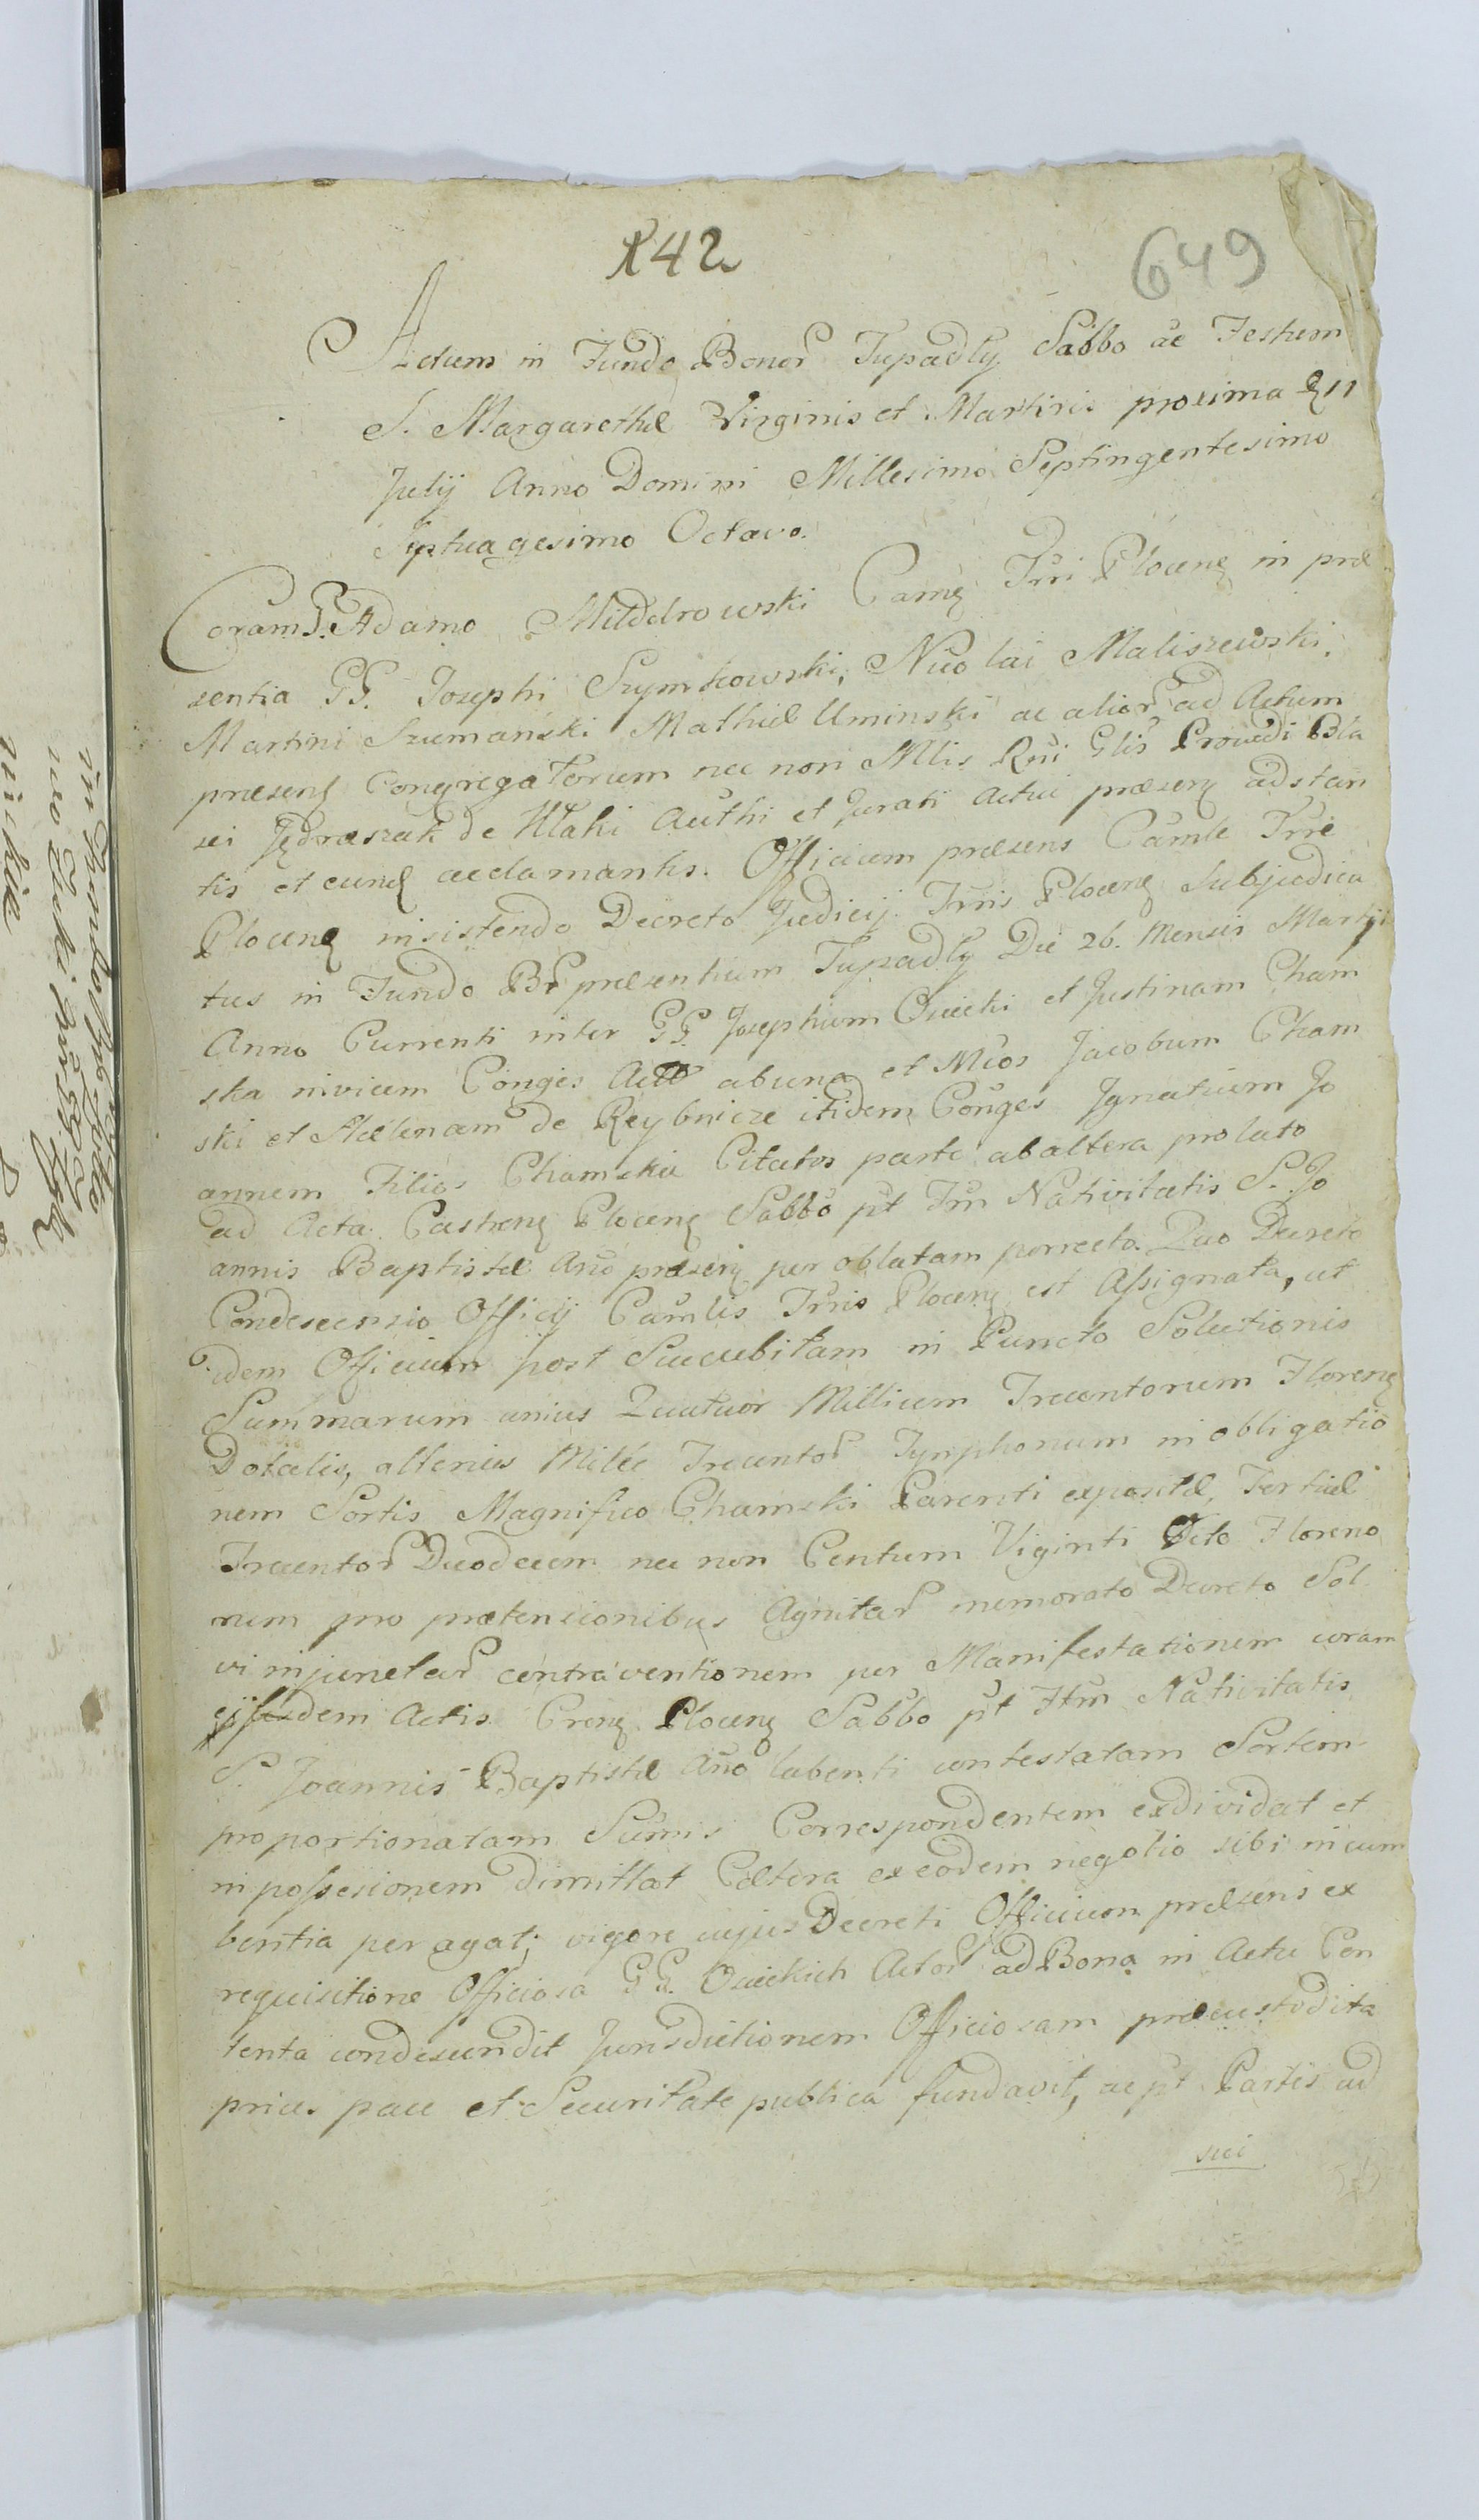 142
649
Actum in Fundo Bonor Tupadly Sabbo ac Festum
S. Margarethæ Virginis et Martiris proxima 11
Julij Anno Domini Millesimo Septingentesimo
Septuagesimo Octavo.
Coram G. Adamo Milddrowski Camg Trri Ploceng in præ
sentia GG. Josephi Szymkowski, Nicolai Maliszewski,
Martini Szumanski Mathiæ Uminski ac alior ad Actum
præsens Congregatorum nec non Mlis Rni Glis Providi Bla
sei Jędraszak de Wlaki Authi et Jurati Actui præseng adstan
tis et eund acclamantis. Officium præsens Camle Trre
Plocens insistendo Decreto Judicij Trris Ploceng Subjudica
tus in Fundo Br præsentium Tupadly Die 26. Mensis Martij
Anno Currenti inter GG. Josephum Osiecki et Justinam Cham
ska invicem Conges Act ab una et Mcos Jacobum Cham
ski et Helenam de Reybnicze itidem Conges Ignatium Jo
annem Filios Chamskie Citatos parte ab altera prolato
ad Acta Castreng Ploceng Sabbo pt Frm Nativitatis S. Jo
annis Baptistæ Ano præseng per oblatam porrecto. Quo Decreto
Condescensio Officij Camlis Trris Ploceng est Assignata, ut
idem Officium post Succubitam in Puncto Solutionis
Summarum unius Quatuor Millium Trecentorum Floreng
Dotalis, alterius Mille Trecentor Tymphonum in obligatio
nem Sortis Magnifico Chamski Parenti expositæ, Tertiæ
Trecentor Duodecem nec non Centum Viginti Octo Floreno
rum pro prætensionibus Agnitar memorato Decreto Sol
vi injunctar contraventionem per Manifestationem coram
ejsdem Actis Creng Ploceng Sabbo pt Ftm Nativitatis
S. Joannis Baptistæ Ano labenti contestatam Sortem
proportionatam Sumis Correspondentem exdividat et
in possesionem dimittat Cætera ex eodem negotio sibi incum
bentia peragat; vigore cujus Decreti Officium præsens ex
requisitione Officiosa GG. Osieckich Actor ad Bona in Actu Con
tenta condescendit Jurisdictionem Officiosam præcustodita
prius pace et Securitate publica fundavit, ac pt Partis ad
sui